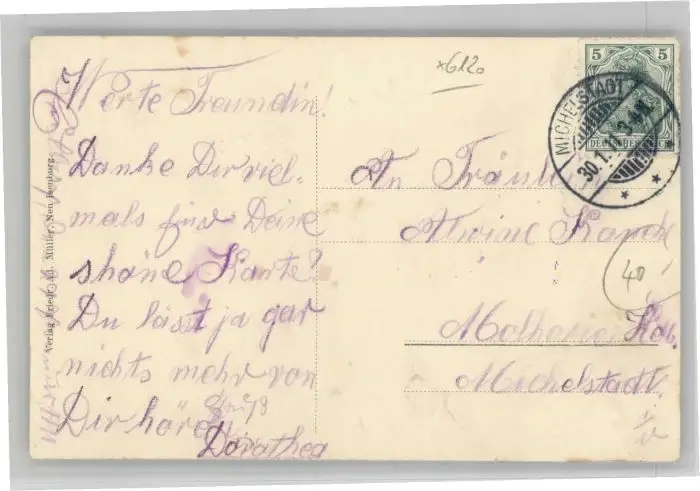 Werte Freundin!
Danke Dir viel-
mals für Deine
shöne Karte?
Du lässt ja gar
nichts mehr von
Dir hören
Gruß
Dorathea
Verlag Friedr. Ad. Müller, Neu-Isenburg
*6120
5 5
DEUTSCHES REICH
MICHELSTADT
30.1.11. 3-4N.
An Fräul.
Alwine
40
Molkerei
Michelstadt
i/